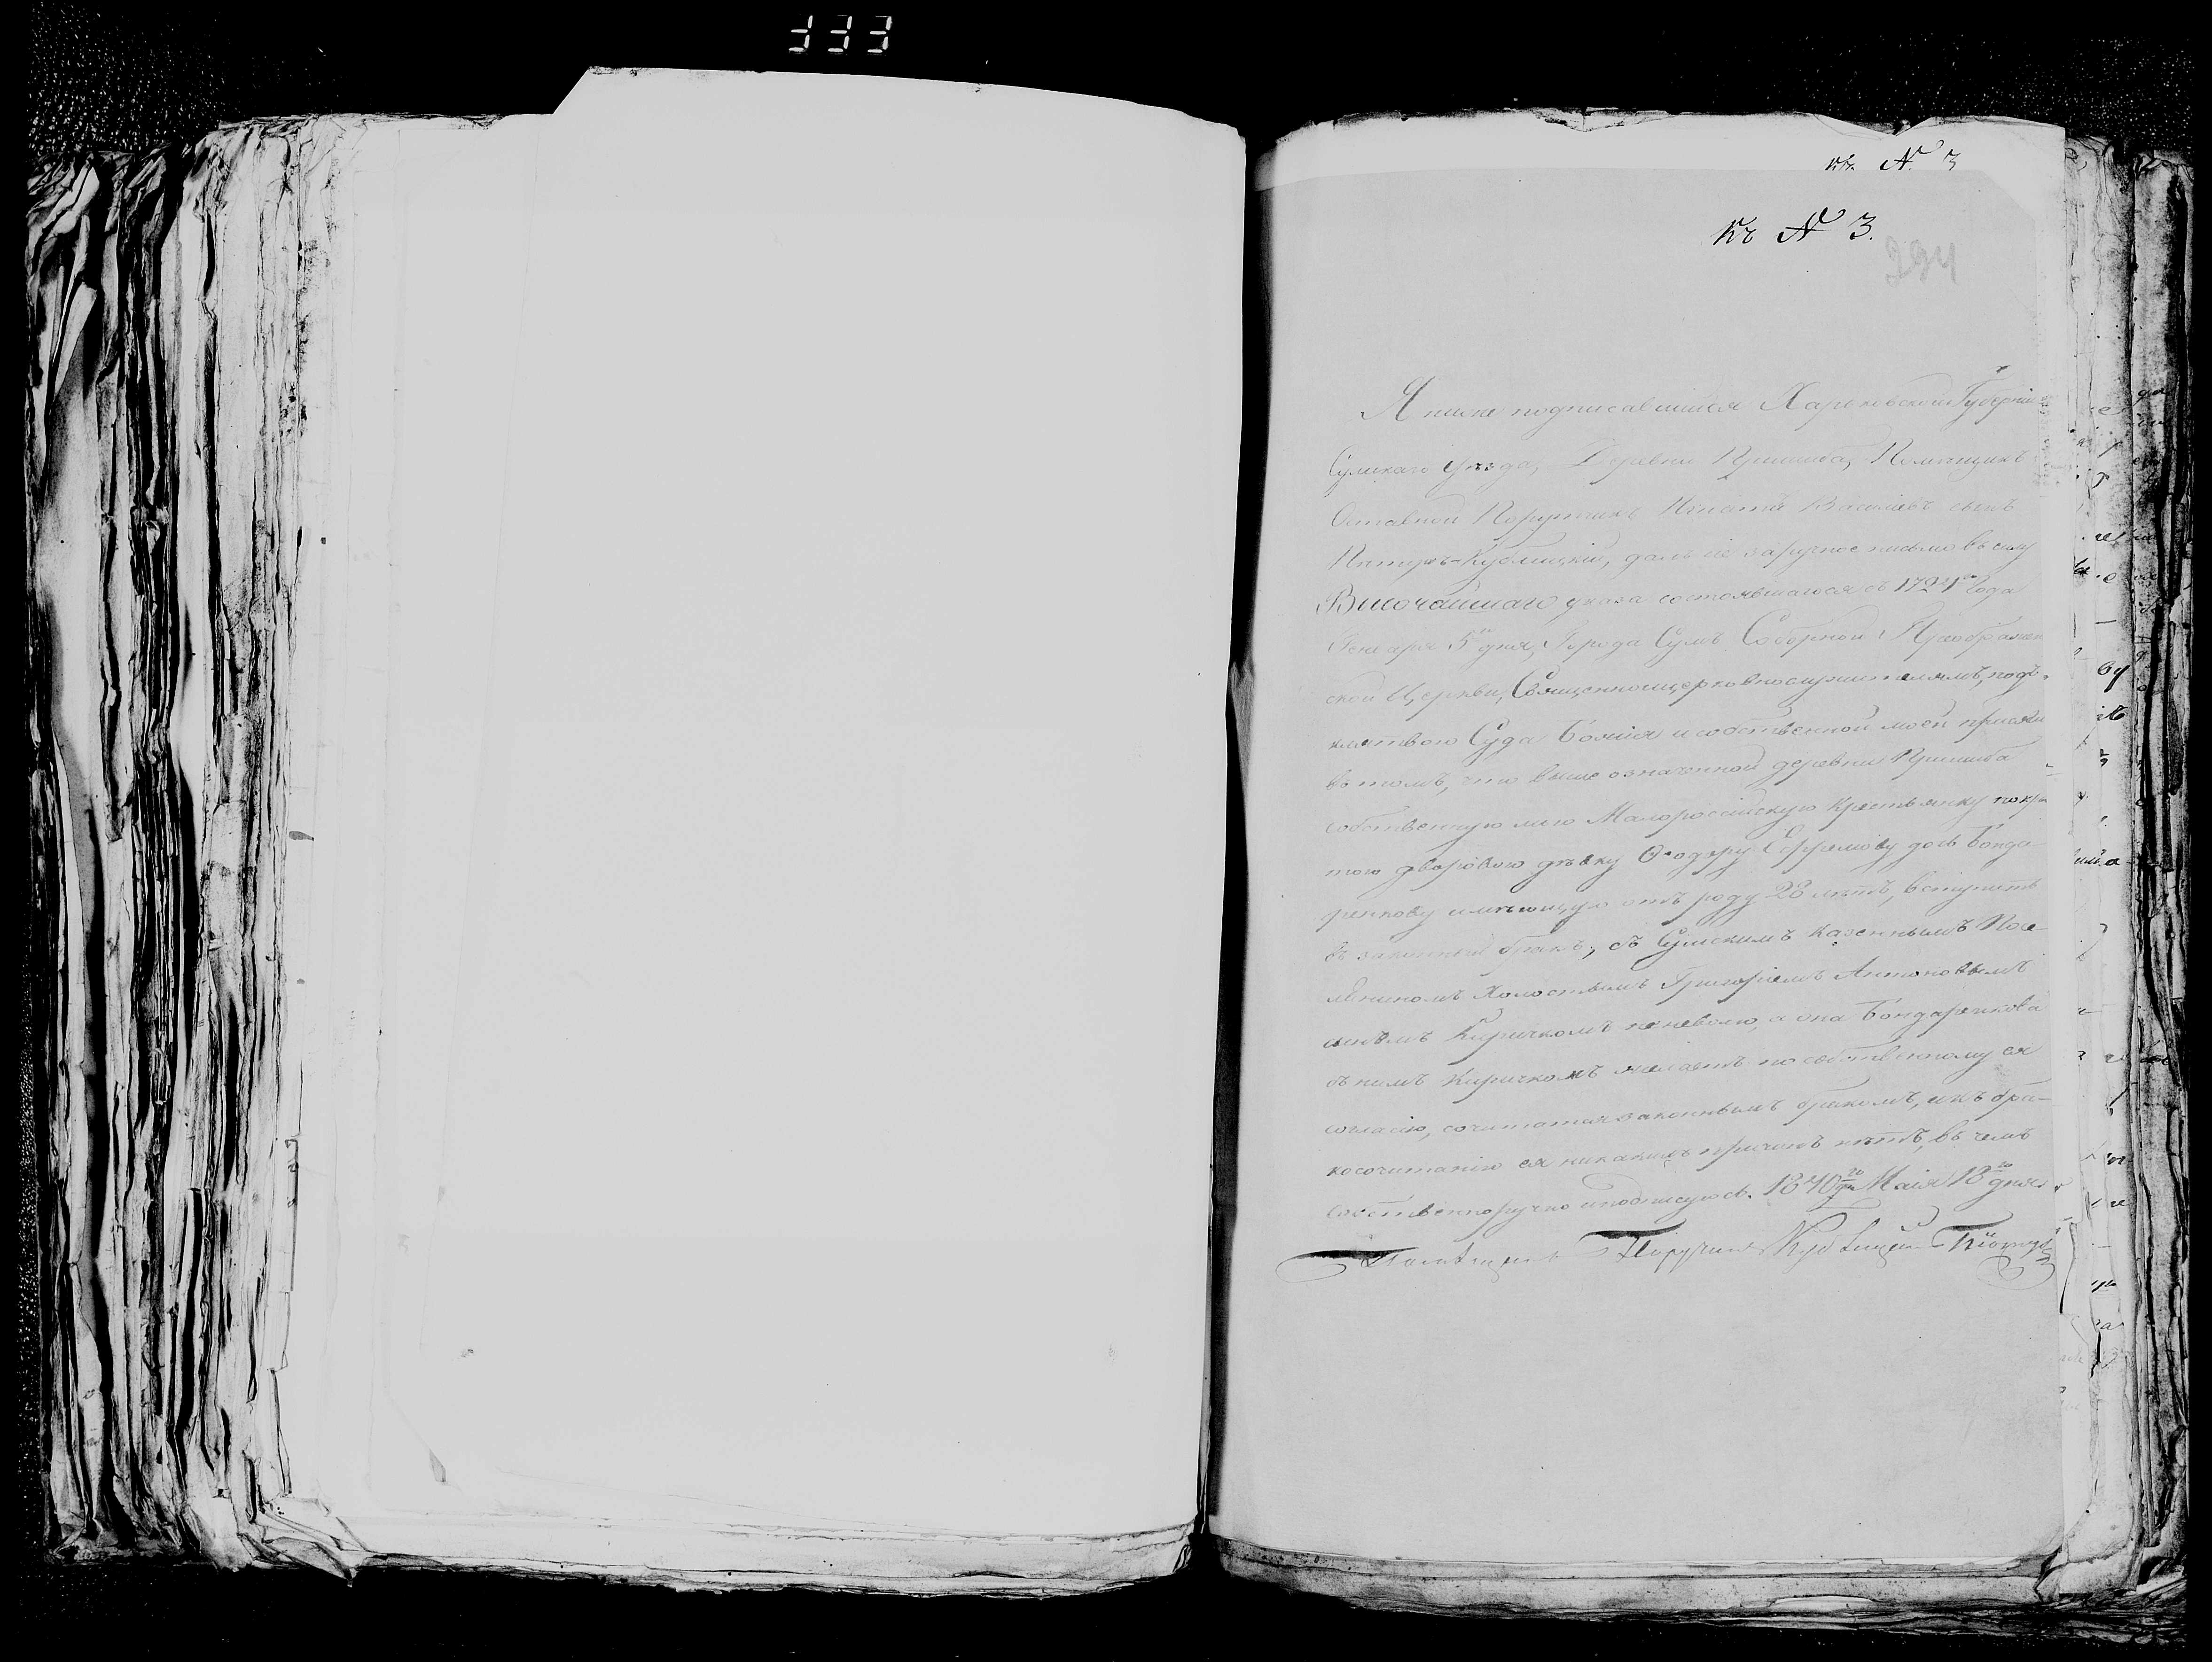 къ № 3
Къ № 3.
294
Я ниже подписавшийся Харьковской Губерніи
Сумскаго уѣзда, Деревни Пришиба, Помѣщикъ
Оставной Порутчикъ Игнатій Васильевъ сынъ
Кублицкій, далъ сіе заручное письмо въ силу
Высочайшаго указа состоявшагося въ 1724 года
Генваря 5 дня, Города Сумъ Соборной Преображен
ской Церкви, Священноцерковнослужителямъ, подъ
клятвою Суда Божія и собственной моей присяги
въ томъ, что выше означенной деревни Пришиба
собственную мою Малороссійскую Крестьянку
дворовою дѣвку Ѳеодору Ефремову дочь Бонда-
ренкову имѣющую отъ роду 28 лѣтъ, вступить
въ законный бракъ, съ Сумскимъ казеннымъ Посе-
ляниномъ Холостымъ Григоріемъ Антоновымъ
сыномъ Киричкомъ неневолю, а она Бондаренкова
съ нимъ Киричкомъ желаетъ по собственному ея
согласію, сочитатся законнымъ бракомъ, и къ бра-
косочитанію ея никакихъ причинъ нѣтъ, въ чемъ
собственноручно и подписуюсь. 1840 го Маія 18 го дня.
Помѣщикъ Поручикъ Кублицкій